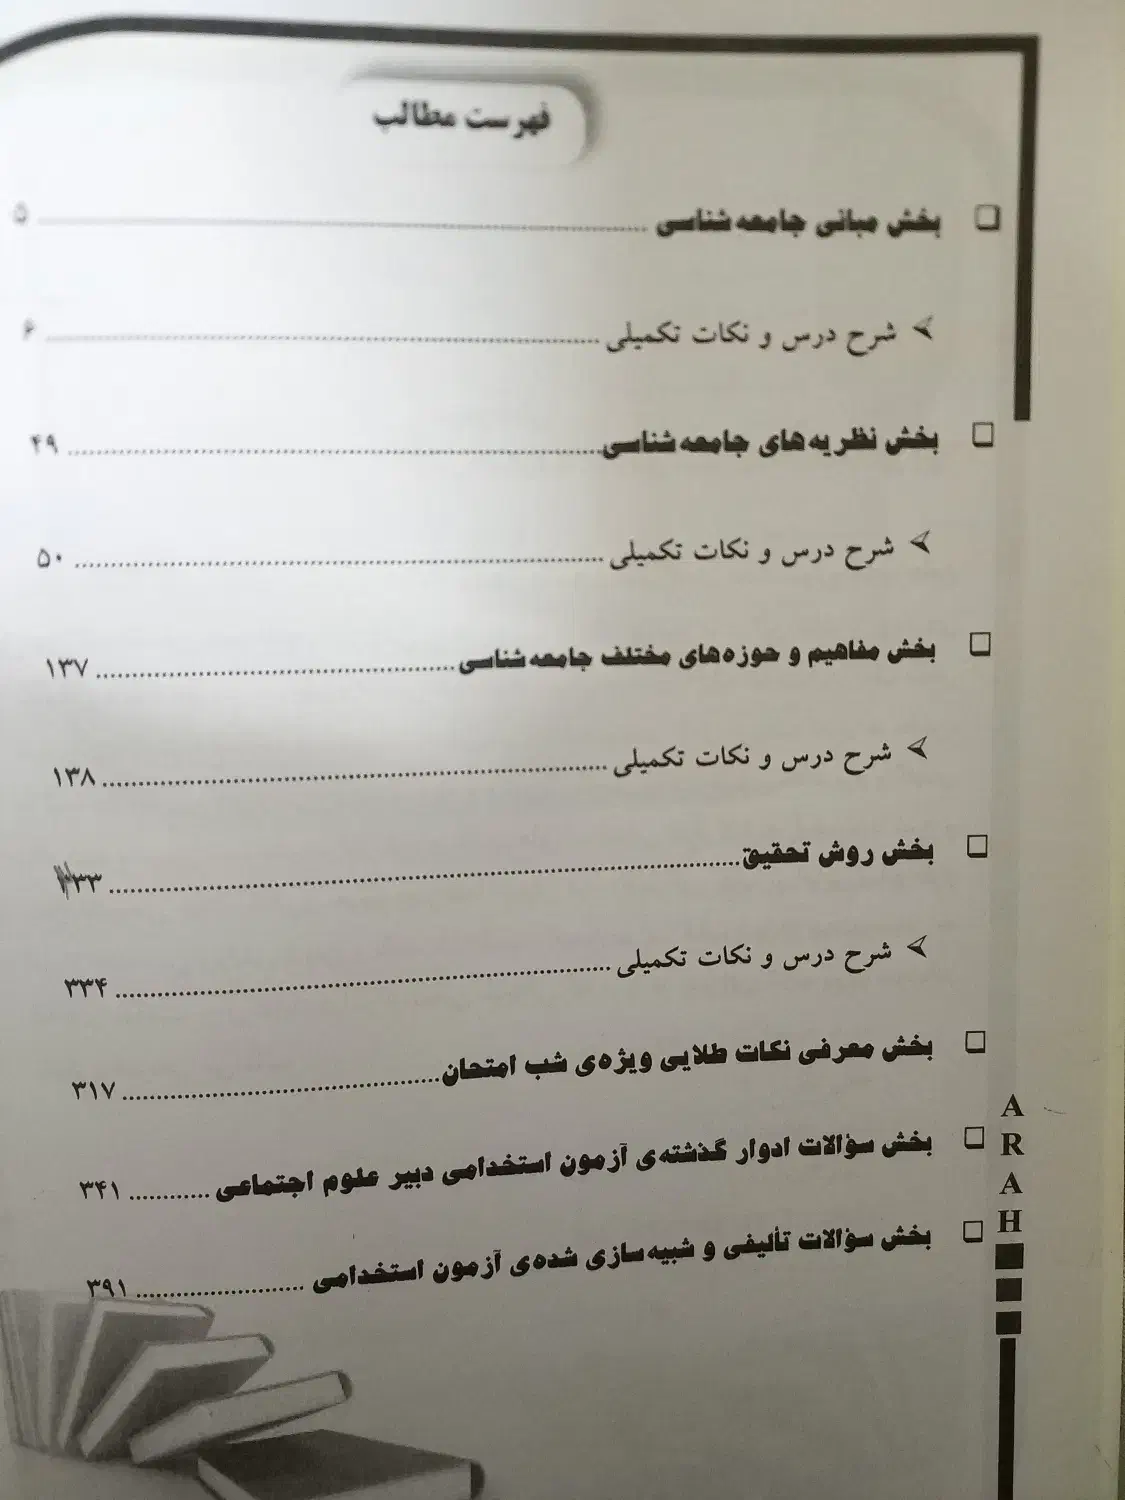 فهرست مطالب
❑ بخش مبانی جامعه‌شناسی ........ ۵
➢ شرح درس و نکات تکمیلی ........ ۶
❑ بخش نظریه‌های جامعه‌شناسی ........ ۴۹
➢ شرح درس و نکات تکمیلی ........ ۵۰
❑ بخش مفاهیم و حوزه‌های مختلف جامعه‌شناسی ........ ۱۳۷
➢ شرح درس و نکات تکمیلی ........ ۱۳۸
❑ بخش روش تحقیق ........ ۲۳۳
➢ شرح درس و نکات تکمیلی ........ ۲۳۴
❑ بخش معرفی نکات طلایی ویژه‌ی شب امتحان ........ ۳۱۷
❑ بخش سؤالات ادوار گذشته‌ی آزمون استخدامی دبیر علوم اجتماعی ........ ۳۴۱
❑ بخش سؤالات تألیفی و شبیه‌سازی شده‌ی آزمون استخدامی ........ ۳۹۱
ARAH